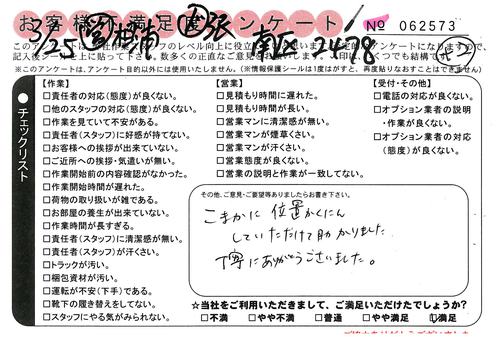 お客様不満足度アンケート
No 062573
3/25
南区 2478
※このアンケートは、アンケート目的以外には使用いたしません。（※情報保護シールは1度はがすと、再度貼りなおすことはできません）
チェックリスト
【作業】
□責任者の対応（態度）が良くない。
□他のスタッフの対応（態度）が良くない。
□作業を見ていて不安がある。
□責任者（スタッフ）に好感が持てない。
□お客様への挨拶が出来ていない。
□ご近所への挨拶・気遣いが無い。
□作業開始前の内容確認がなかった。
□作業開始時間が遅れた。
□荷物の取り扱いが雑である。
□お部屋の養生が出来ていない。
□作業時間が長すぎる。
□責任者（スタッフ）に清潔感が無い。
□責任者（スタッフ）が汗くさい。
□トラックが汚い。
□梱包資材が汚い。
□運転が不安（下手）である。
□靴下の履き替えをしてない。
□スタッフにやる気がみられない。
【営業】
□見積もり時間に遅れた。
□見積もり時間が長い。
□営業マンに清潔感が無い。
□営業マンが煙草くさい。
□営業マンが汗くさい。
□営業態度が良くない。
□営業の説明と作業が一致してない。
【受付・その他】
□電話の対応が良くない。
□オプション業者の説明・作業が良くない。
□オプション業者の対応（態度）が良くない。
その他、ご意見・ご要望等ありましたらお書き下さい。
こまかに位置かくにん
していただけて助かりました
丁寧にありがとうございました。
☆当社をご利用いただきまして、ご満足いただけたでしょうか？
□不満 □やや不満 □普通 □やや満足 ☑満足